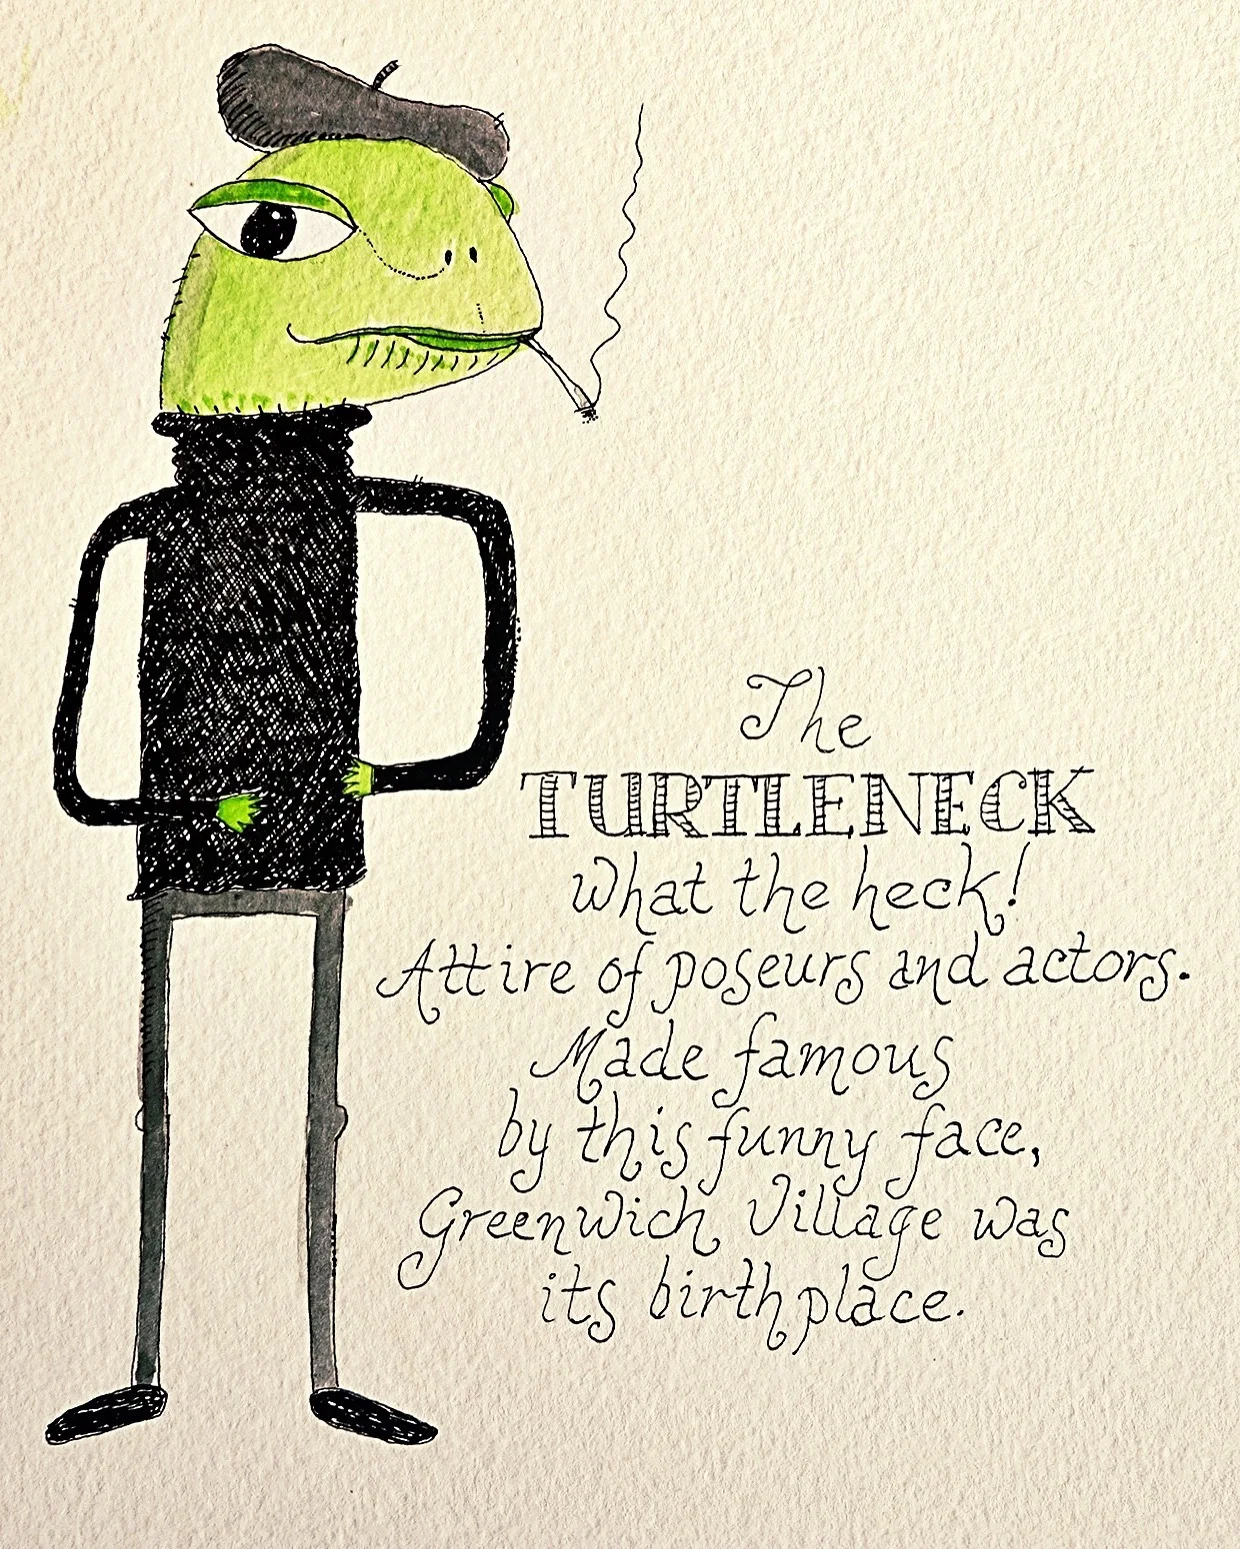 The
TURTLENECK
What the heck!
Attire of poseurs and actors.
Made famous
by this funny face,
Greenwich Village was
its birthplace.